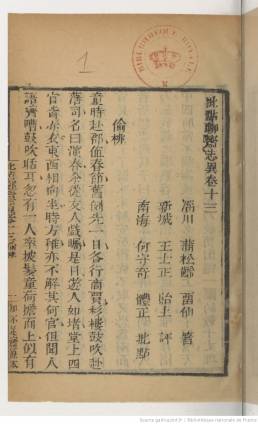 批點聊齋志異卷十三
淄川 蒲松齡 留仙 著
新城 王士正 貽上 評
南海 何守奇 體正 批點
偷桃
童時赴郡值春節舊例先一日各行商賈彩樓鼓吹赴
藩司名曰演春余從友人戲矚是日遊人如堵堂上四
官皆赤衣東西相向坐時方稚亦不解其何官但聞人
語嘈鼓吹聒耳忽有一人率披髮童荷擔而上似有
1
BIBLIOTHEQUE ROYALE
Source gallica.bnf.fr / Bibliothèque nationale de France